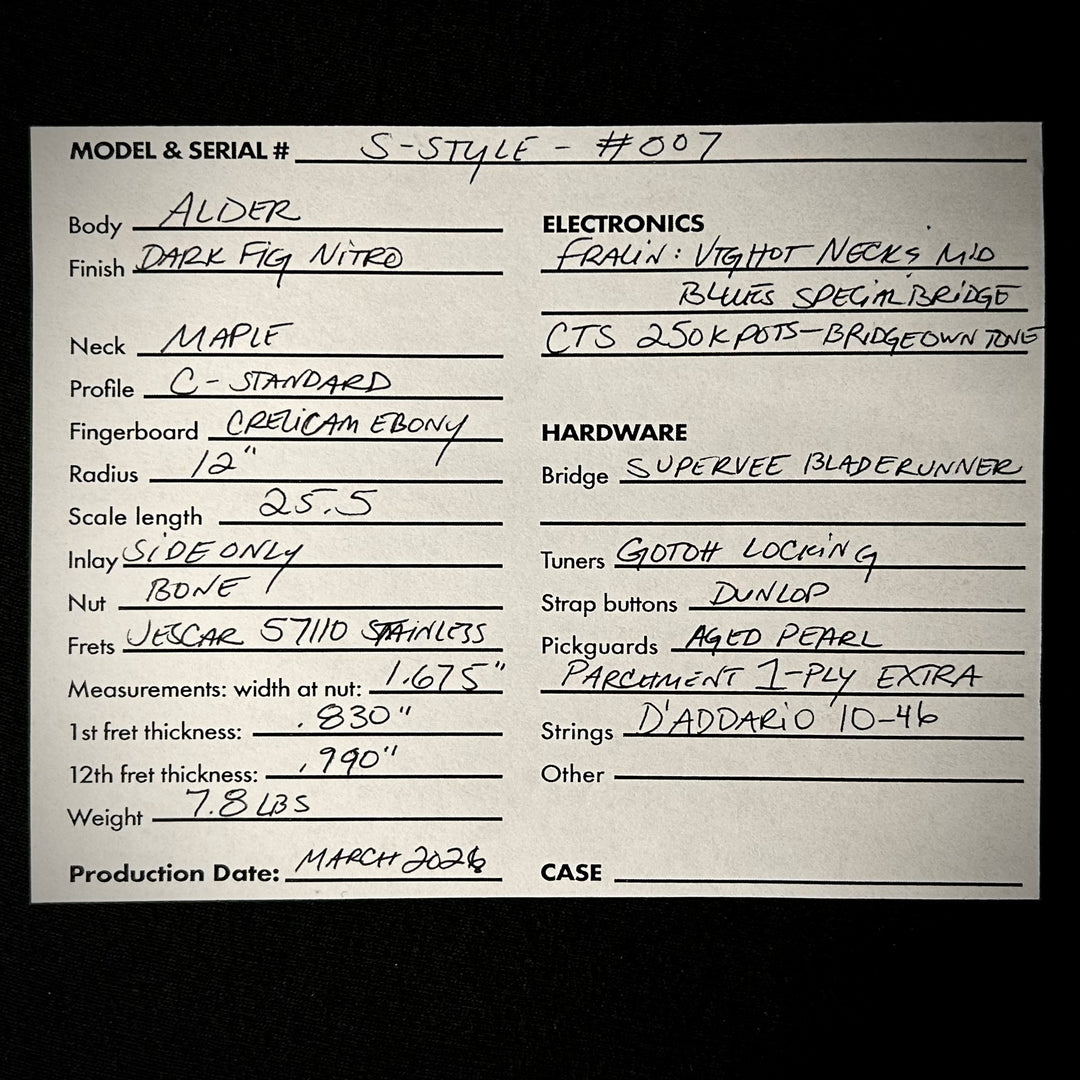 MODEL & SERIAL # S-STYLE - #007
Body ALDER
Finish DARK FIG NITRO
Neck MAPLE
Profile C-STANDARD
Fingerboard CRELICAM EBONY
Radius 12"
Scale length 25.5
Inlay SIDE ONLY
Nut BONE
Frets JESCAR 57110 STAINLESS
Measurements: width at nut: 1.675"
1st fret thickness: .830"
12th fret thickness: .990"
Weight 7.8 LBS
Production Date: MARCH 2026
ELECTRONICS
FRALIN: VTG HOT NECK & MID
BLUES SPECIAL BRIDGE
CTS 250K POTS - BRIDGE OWN TONE
HARDWARE
Bridge SUPERVEE BLADERUNNER
Tuners GOTOH LOCKING
Strap buttons DUNLOP
Pickguards AGED PEARL
PARCHMENT 1-PLY EXTRA
Strings D'ADDARIO 10-46
Other
CASE